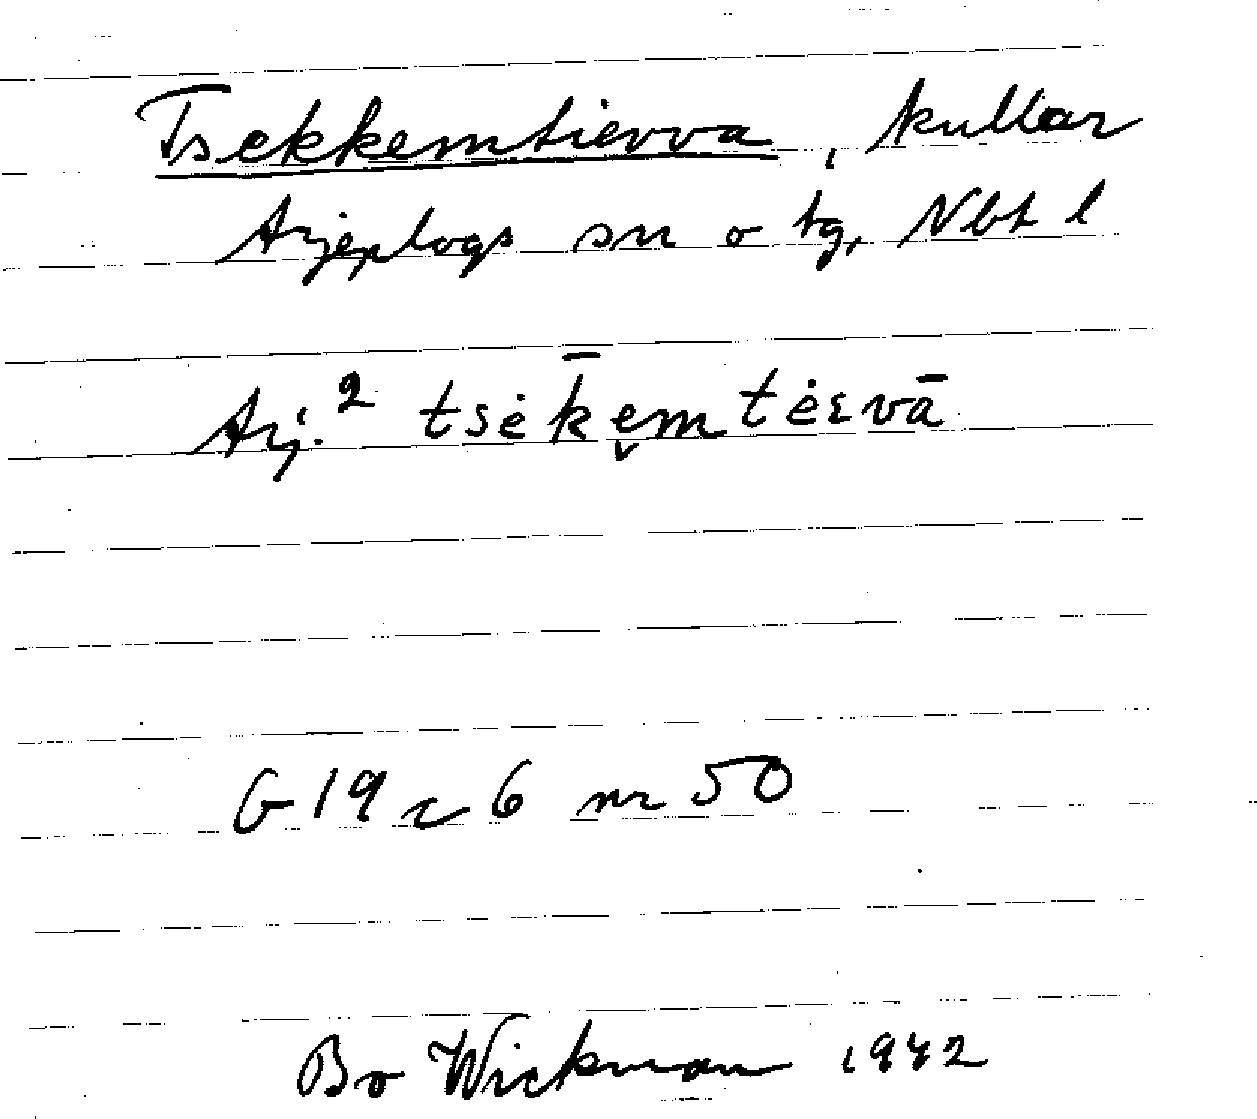 Tsekkemtievva, kullar
Arjeplogs sn o tg, Nbt l
Arj.² tsėk̄e̬m tėɛvā
G 19 c 6 nr 50
Bo Wickman 1942